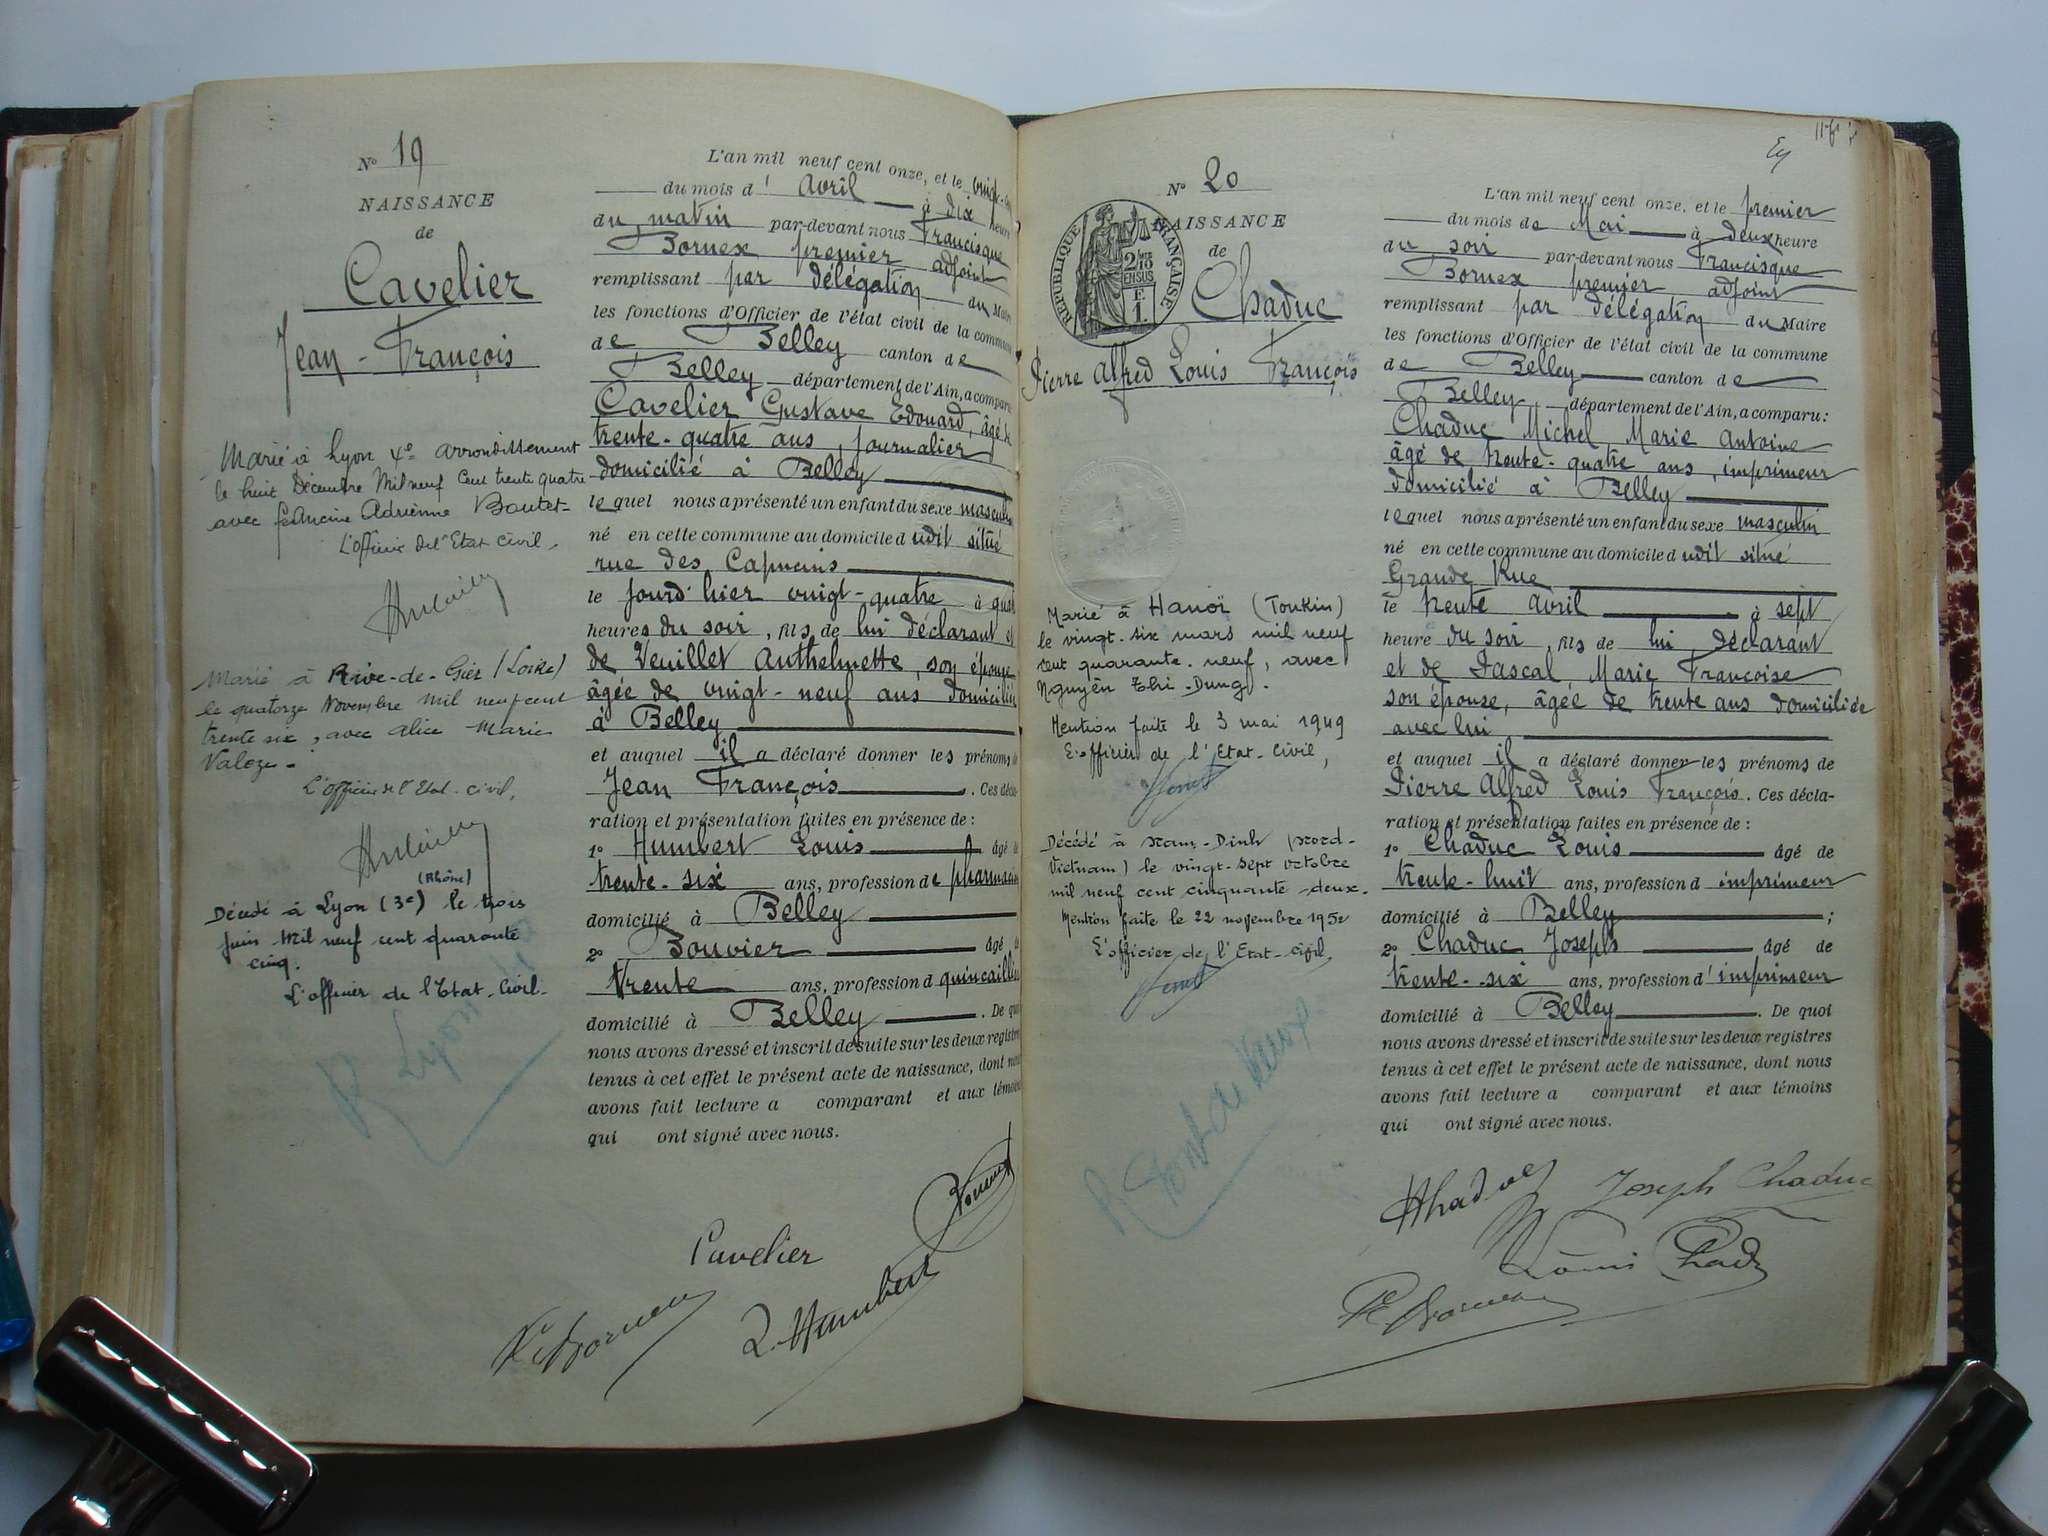 N° 19
NAISSANCE
de
Cavelier
Jean-François
Marié à Lyon 4e arrondissement
le huit Décembre Mil neuf Cent trente quatre
avec Francine Adrienne Boutet-
L'officier de l'Etat Civil.
Marié à Rive-de-Gier (Loire)
le quatorze Novembre mil neuf cent
trente six, avec Alice Marie
Valeze.
L'officier de l'Etat-civil,
(Rhône)
Décédé à Lyon (3e) le trois
juin mil neuf cent quarante
cinq.
L'officier de l'Etat-Civil-
R Lyon
L'an mil neuf cent onze, et le vingt-
du mois d' Avril à dix heure
du matin par-devant nous Francisque
Bornex premier adjoint
remplissant par délégation du Maire
les fonctions d'Officier de l'état civil de la commune
de Belley canton de
Belley département de l'Ain, a comparu
Cavelier Gustave Edouard, âgé de
trente-quatre ans, journalier
domicilié à Belley
lequel nous a présenté un enfant du sexe masculin
né en cette commune au domicile dudit situé
rue des Capucins
le jourd'hier vingt-quatre à quatre
heures du soir, fils de lui déclarant et
de Veuillet Anthelmette, son épouse
âgée de vingt-neuf ans domiciliée
à Belley
et auquel il a déclaré donner les prénoms de
Jean François. Ces décla-
ration et présentation faites en présence de :
1° Humbert Louis âgé de
trente-six ans, profession de pharmacien
domicilié à Belley
2° Bouvier âgé de
trente ans, profession de quincaillier
domicilié à Belley. De quoi
nous avons dressé et inscrit de suite sur les deux registres
tenus à cet effet le présent acte de naissance, dont nous
avons fait lecture a comparant et aux témoins
qui ont signé avec nous.
Cavelier
L. Humbert
N° 20
NAISSANCE
de
RÉPUBLIQUE FRANÇAISE
2/10 EN SUS
F.
1.
Chaduc
Pierre Alfred Louis François
Marié à Hanoï (Tonkin)
le vingt-six mars mil neuf
cent quarante-neuf, avec
Nguyên Thi-Dung.
Mention faite le 3 mai 1949
L'officier de l'Etat-Civil,
Décédé à Nam-Dinh (Nord-
Vietnam) le vingt-sept octobre
mil neuf cent cinquante-deux.
Mention faite le 22 novembre 1952
L'officier de l'Etat-civil,
R Pont de Vaux
L'an mil neuf cent onze, et le premier
du mois de Mai à deux heure
du soir par-devant nous Francisque
Bornex premier adjoint
remplissant par délégation du Maire
les fonctions d'Officier de l'état civil de la commune
de Belley canton de
Belley département de l'Ain, a comparu :
Chaduc Michel Marie Antoine
âgé de trente-quatre ans, imprimeur
domicilié à Belley
lequel nous a présenté un enfant du sexe masculin
né en cette commune au domicile dudit situé
Grande Rue
le trente Avril à sept
heure du soir, fils de lui déclarant
et de Pascal, Marie Françoise
son épouse, âgée de trente ans domiciliée
avec lui
et auquel il a déclaré donner les prénoms de
Pierre Alfred Louis François. Ces décla-
ration et présentation faites en présence de :
1° Chaduc Louis âgé de
trente-huit ans, profession d imprimeur
domicilié à Belley ;
2° Chaduc Joseph âgé de
trente-six ans, profession d'imprimeur
domicilié à Belley. De quoi
nous avons dressé et inscrit de suite sur les deux registres
tenus à cet effet le présent acte de naissance, dont nous
avons fait lecture a comparant et aux témoins
qui ont signé avec nous.
Chaduc Joseph Chaduc
Louis Chaduc